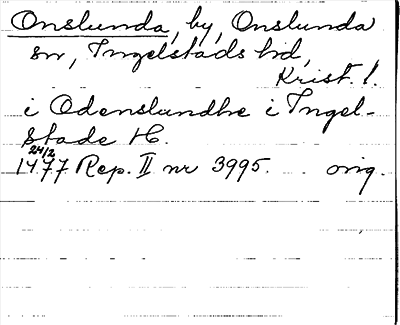 Onslunda, by, Onslunda
sn, Ingelstads hd,
Krist. l.
i Odenslundhe i Ingel-
stade H.
24/2
1477 Rep. II nr 3995. orig.